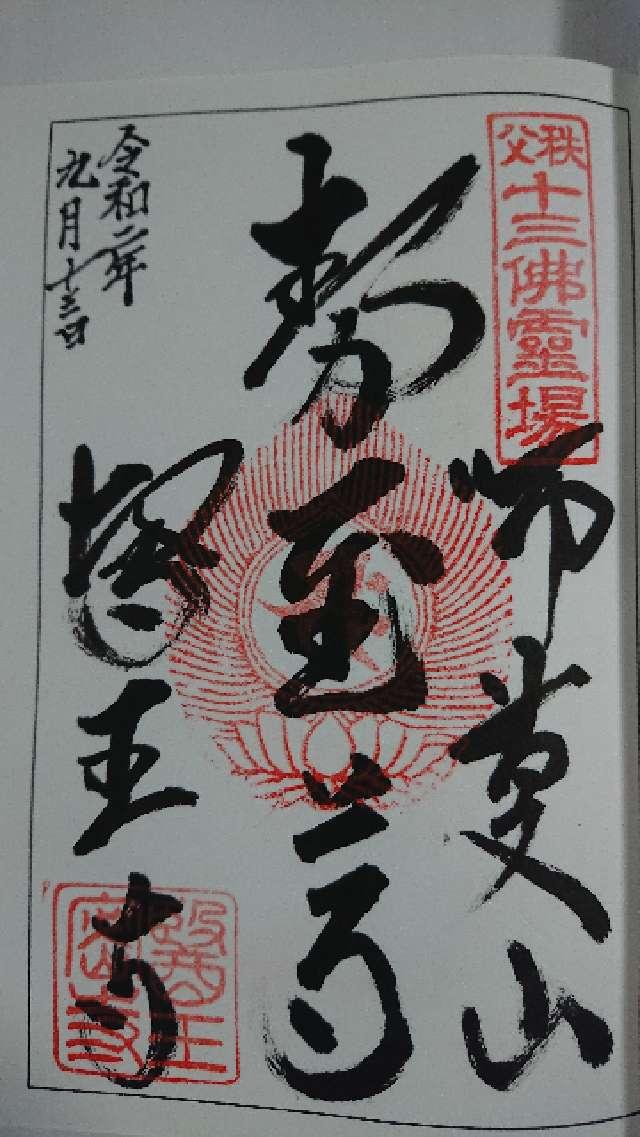 秩父十三佛靈場
山
勢至尊
醫王寺
令和二年
九月十三日
醫王